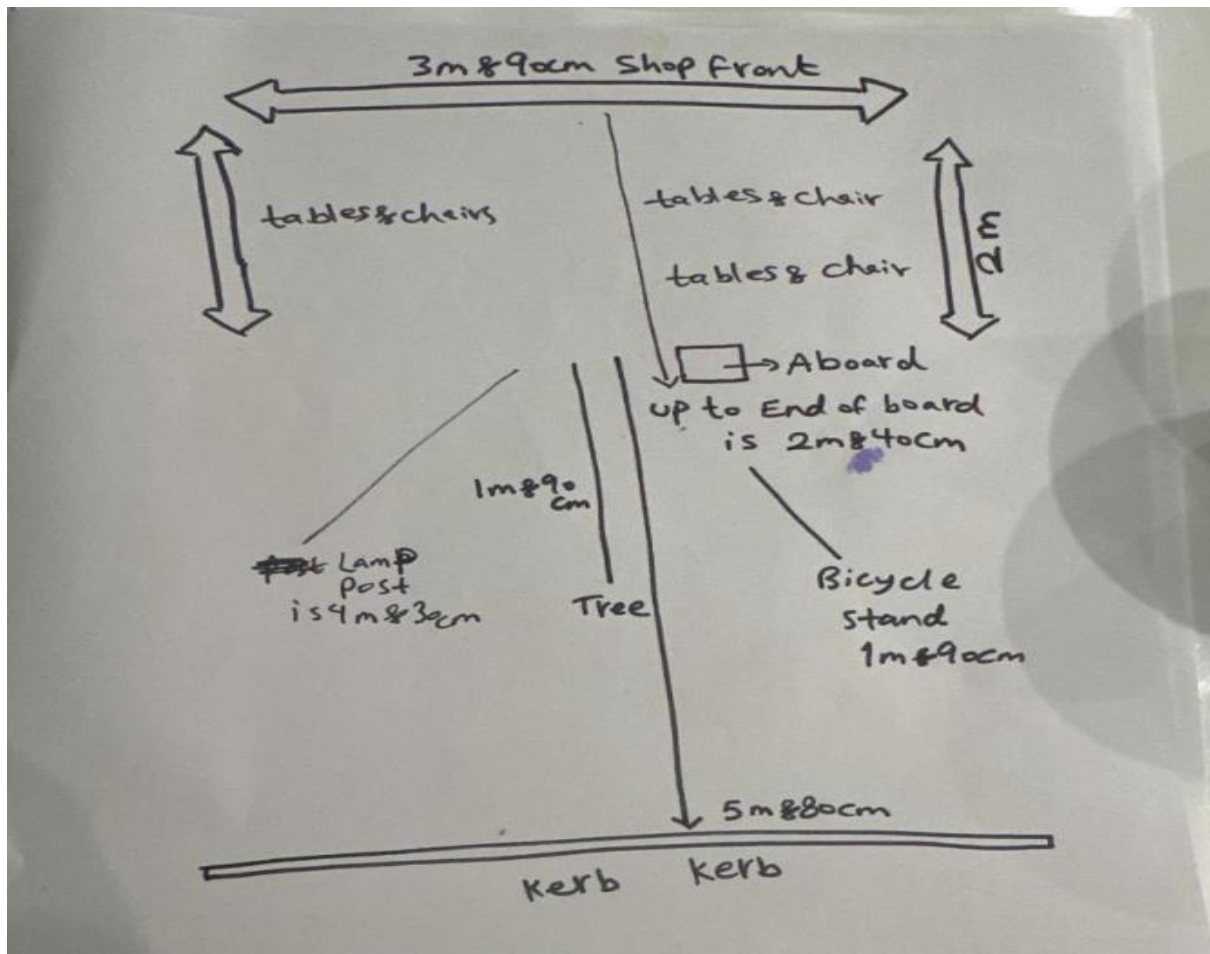 3m & 90cm Shop front
tables & chairs
tables & chair
2m
tables & chair
Aboard
up to End of board
is 2m & 40cm
1m & 90
cm
Lamp
Post
is 4m & 30cm
Tree
Bicycle
stand
1m & 90cm
5m & 80cm
Kerb Kerb